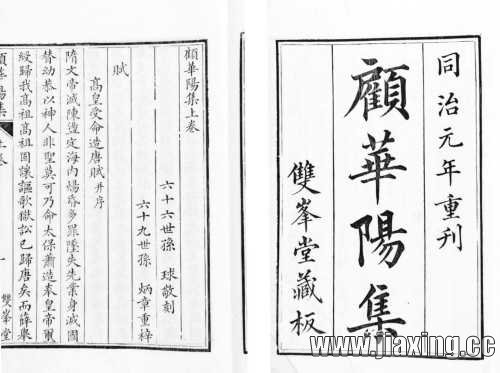 同治元年重刊
顧華陽集
雙峯堂藏板
顧華陽集上卷
六十六世孫 球敬刻
六十九世孫 炳章重梓
賦
高皇受命造唐賦并序
隋文帝滅陳遂定海內煬帝多罪墜失先業身滅國
替幼恭以神人非聖莫可乃命太保蕭造奉皇帝璽
綬歸我高祖高祖固懷謳歌獄訟已歸唐矣而薛舉
顧華陽集
上卷
一
雙峯堂
www.jiaxing.cc